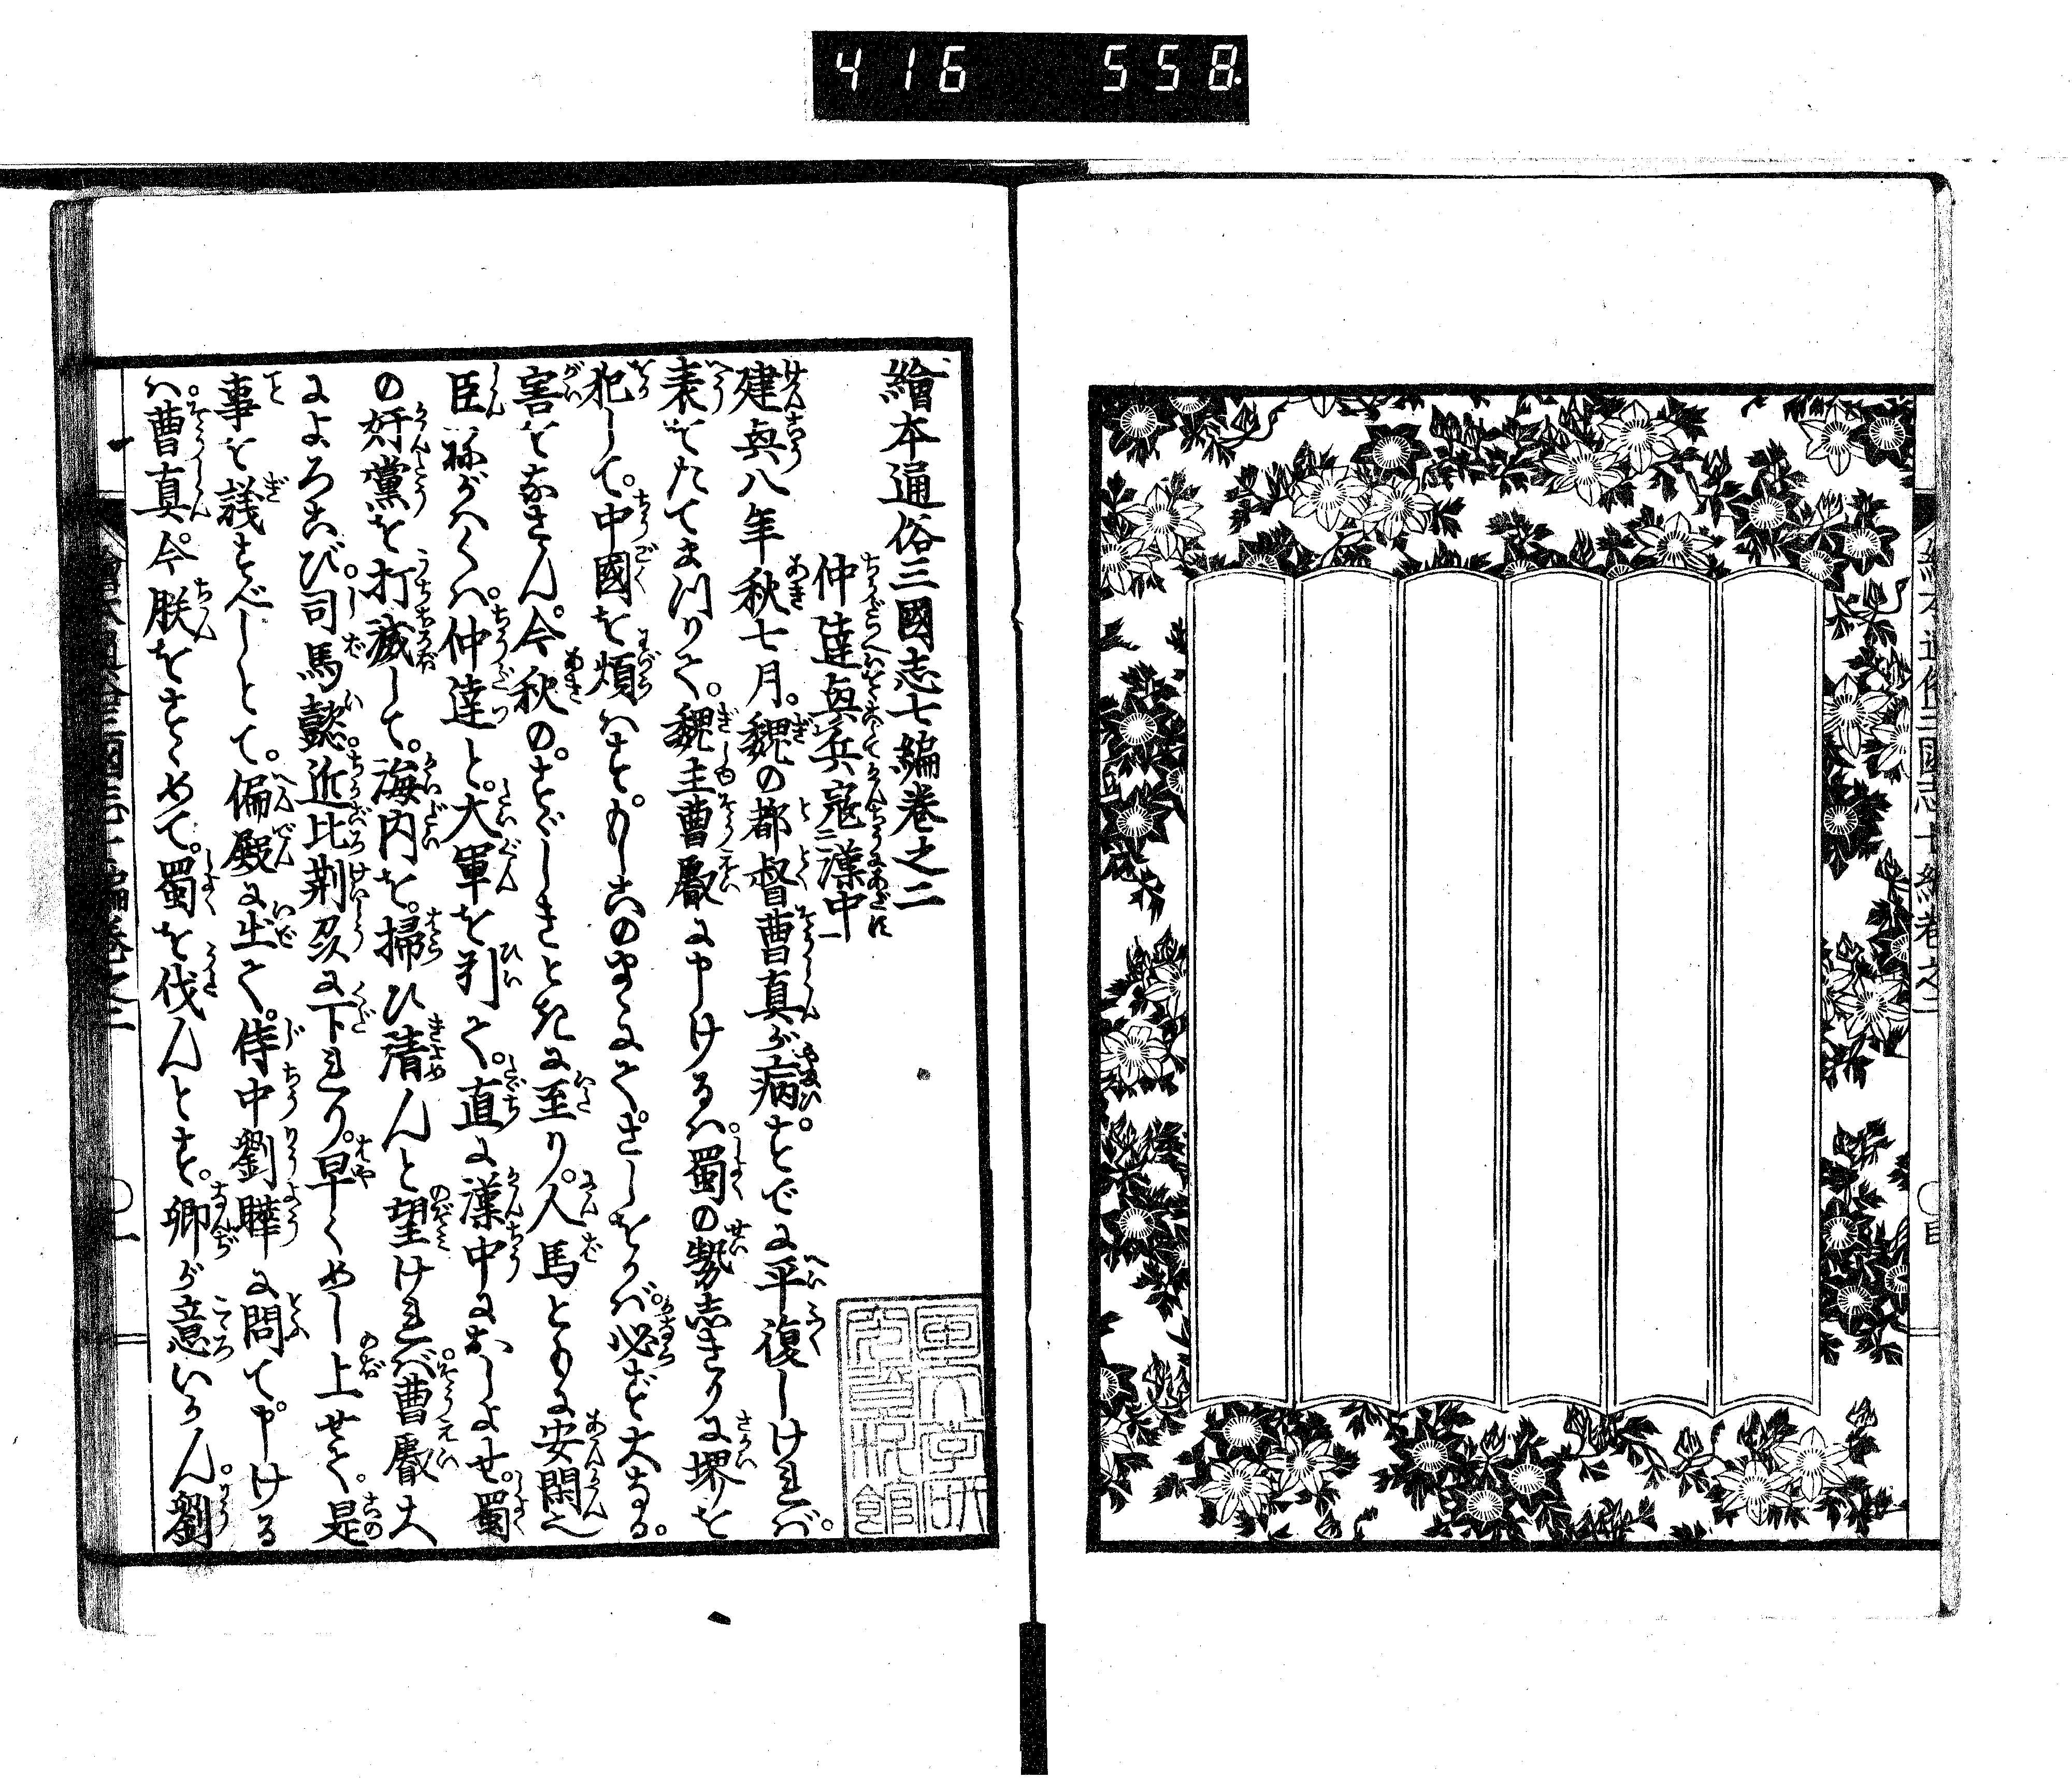 416 558
繪本通俗三國志七編卷之二
仲達興兵寇漢中
建興八年秋七月。魏の都督曹真が病。すでに平復しければ。
表をたてまつりて。魏主曹叡に申けるは。蜀の勢志きりに堺を
犯して。中國を煩はす。もしこのまゝにて。さしをかば。必ず大なる。
害をなさん。今秋の。すゞしきときに至り。人馬ともに安閑之
臣ねがはくは。仲達と。大軍を引て。直に漢中におしよせ。蜀
の奸黨を打滅して。海内を。掃ひ清んと望ければ。曹叡大
によろこび。司馬懿。近比荊州に下れり。早くめし上せて。是
事を議すべしとて。偏殿に出て。侍中劉曄に問て。申ける
は。曹真。今朕をすゝめて。蜀を伐んとす。卿が意いかん。劉